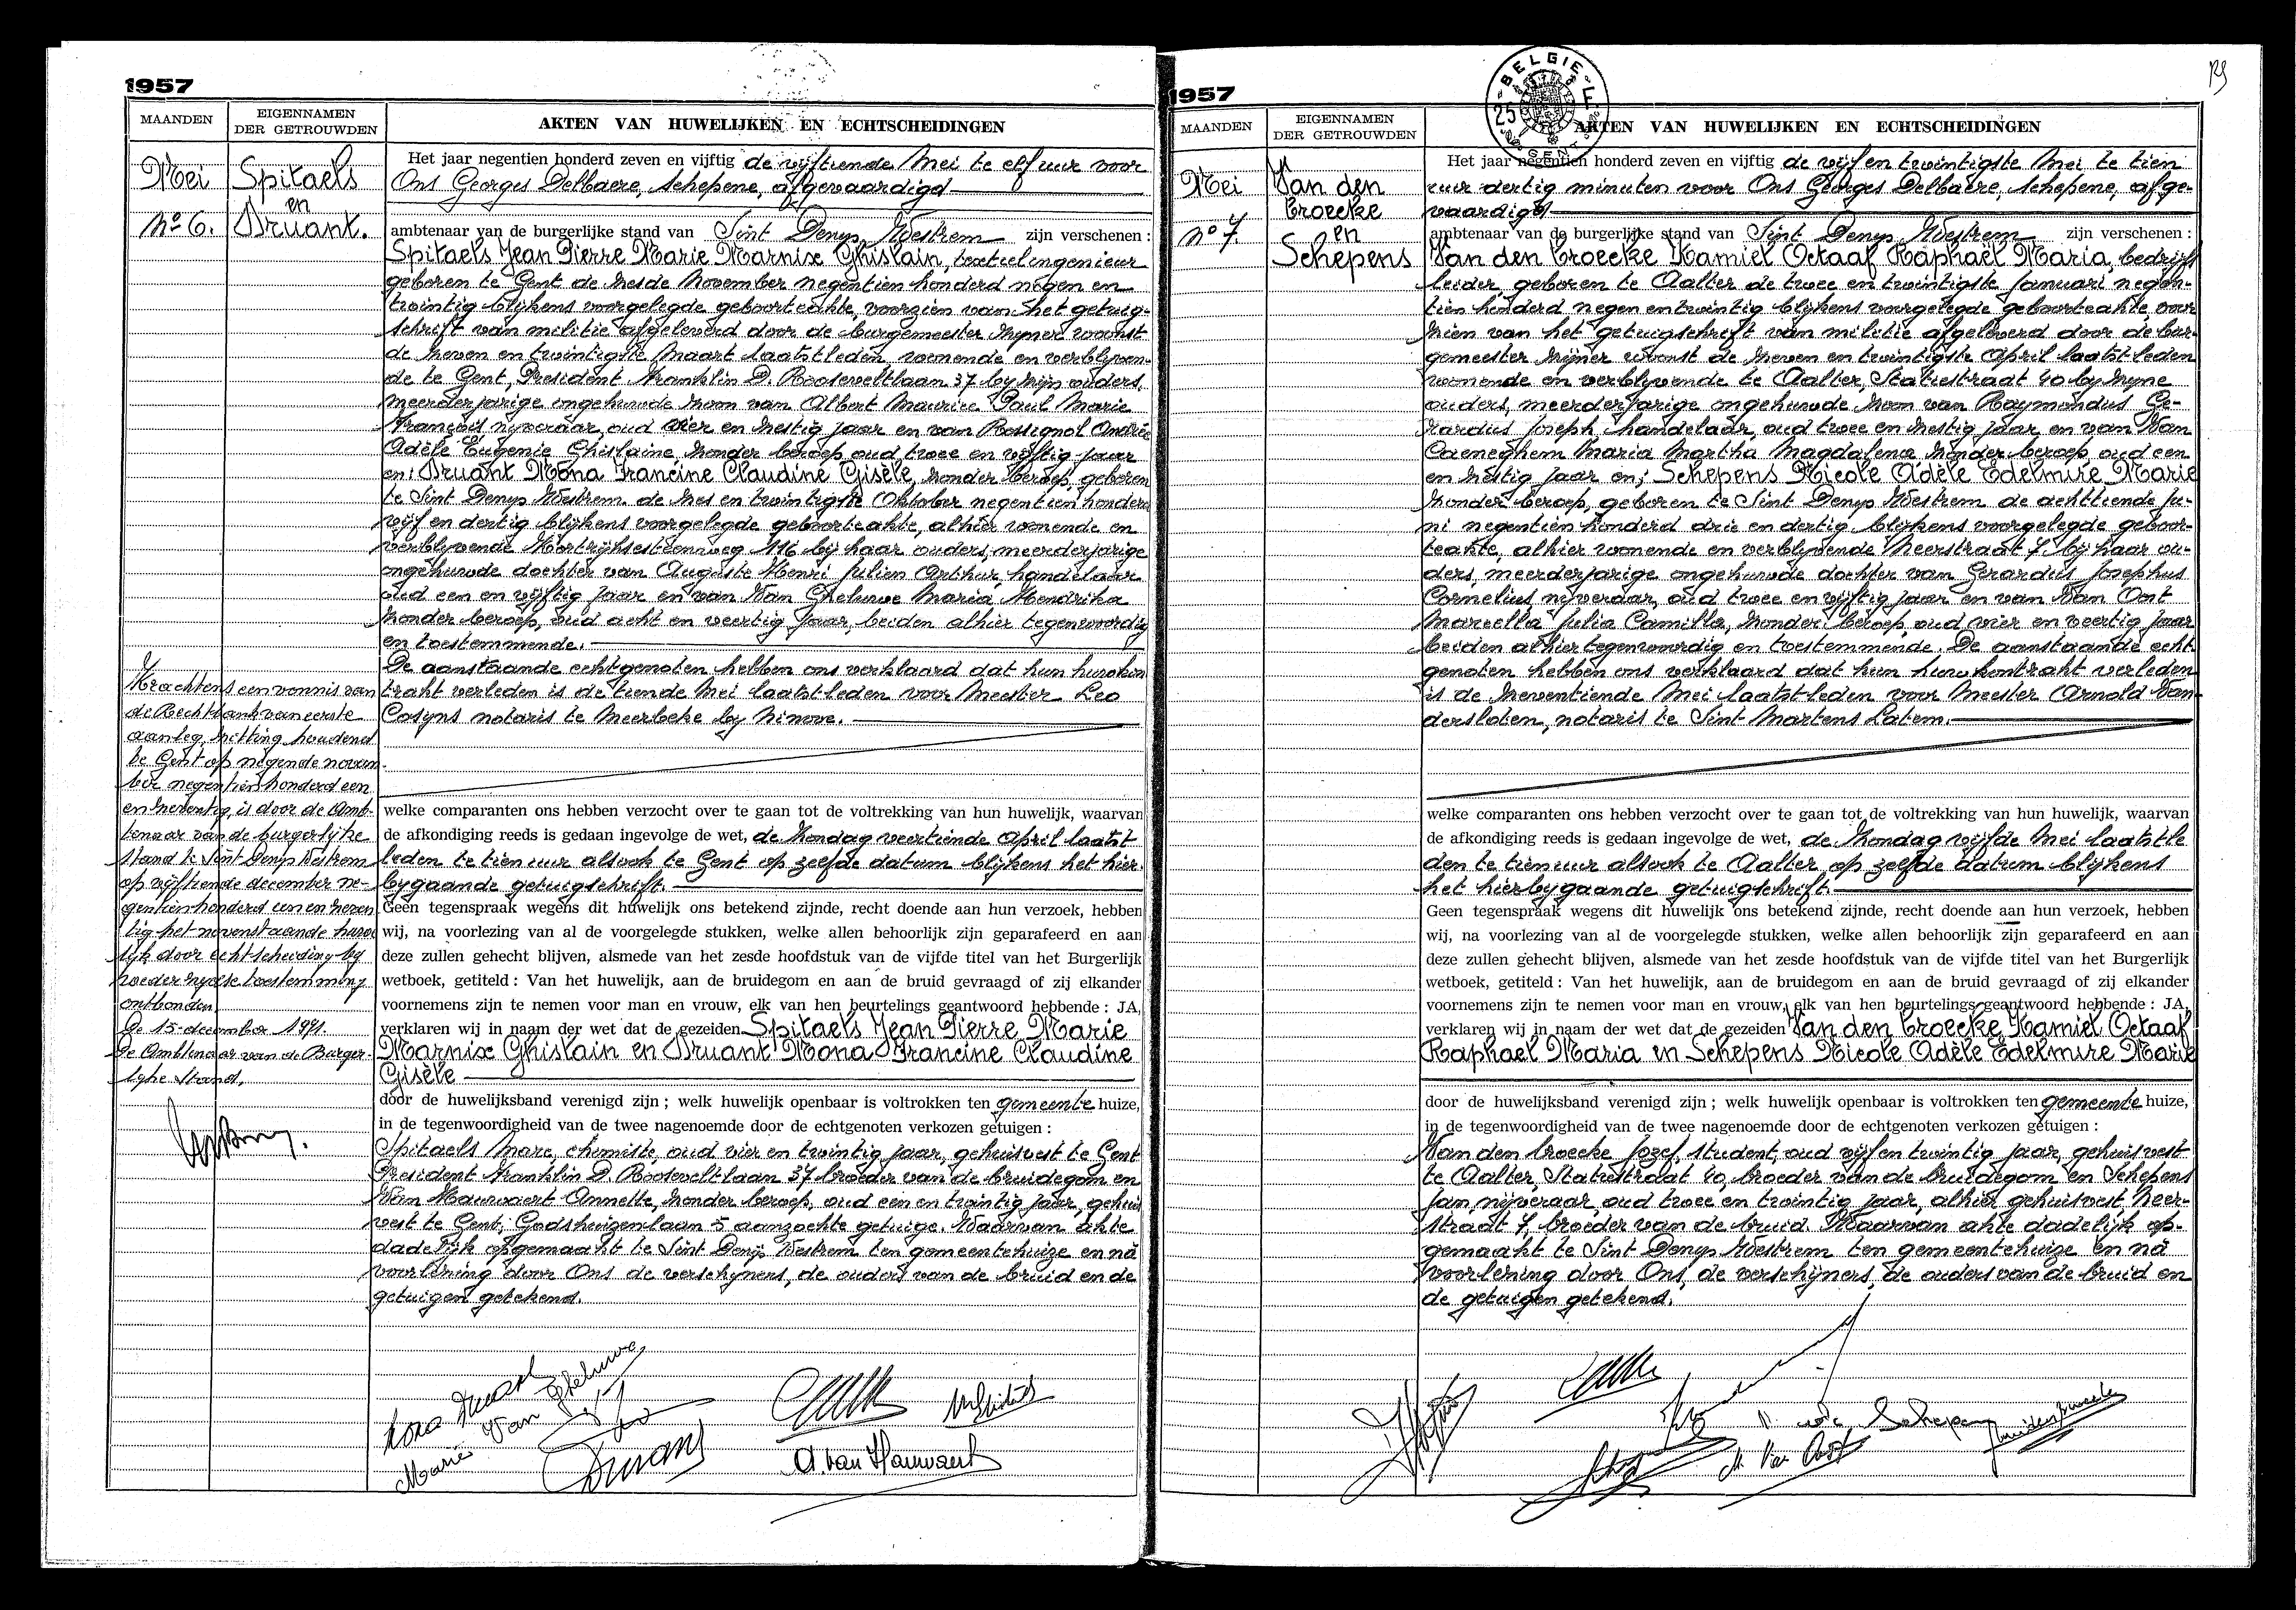 1957
MAANDEN
EIGENNAMEN
DER GETROUWDEN
AKTEN VAN HUWELIJKEN EN ECHTSCHEIDINGEN
Mei
Spitaels
en
Nº 6.
Druant.
Het jaar negentien honderd zeven en vijftig de vijftiende Mei te elf uur voor
Ons Georges Delbaere, schepene, afgevaardigd
ambtenaar van de burgerlijke stand van Sint Denys Westrem zijn verschenen :
Spitaels Jean Pierre Marie Marnix Ghislain, textielingenieur
geboren te Gent de zesde November negentien honderd negen en
twintig blijkens voorgelegde geboorteakte, voorzien van het getuig-
schrift van militie afgeleverd door de burgemeester zijner woonst
de zeven en twintigste Maart laatstleden wonende en verblijven-
de te Gent, President Franklin D. Rooseveltlaan 37 by zijn ouders,
meerderjarige ongehuwde zoon van Albert Maurice Paul Marie
François nijveraar, oud vier en zestig jaar en van Rossignol Andrée
Adèle Eugenie Ghislaine zonder beroep oud twee en vijftig jaar
en: Druant Mona Francine Claudine Gisèle, zonder beroep, geboren
te Sint Denys Westrem de zes en twintigste Oktober negentien honderd
vijf en dertig blijkens voorgelegde geboorteakte, alhier wonende en
verblijvende Kortrijksesteenweg 116 bij haar ouders, meerderjarige
ongehuwde dochter van Auguste Henri Julien Arthur, handelaar
oud een en vijftig jaar en van Van Gheluwe Maria Hendrika
zonder beroep, oud acht en veertig jaar, beiden alhier tegenwoordig
en toestemmende.
De aanstaande echtgenoten hebben ons verklaard dat hun huwkon
trakt verleden is de tiende Mei laatstleden voor Meester Leo
Cosyns notaris te Meerbeke by Ninove.
Krachtens een vonnis van
de Rechtbank van eerste
aanleg, zitting houdend
te Gent op negende novem
ber negentien honderd een
en zeventig, is door de Amb-
tenaar van de burgerlijke
stand te Sint Denys Westrem
op vijftiende december ne-
gentien honderd een en zeven
tig het nevenstaande huwe
lijk door echtscheiding by
wederzijdse toestemming
ontbonden.
De 15 december 1971.
De Ambtenaar van de Burger-
lijke Stand,
welke comparanten ons hebben verzocht over te gaan tot de voltrekking van hun huwelijk, waarvan
de afkondiging reeds is gedaan ingevolge de wet, de Zondag veertiende April laatst
leden te tien uur alsook te Gent op zelfde datum blijkens het hier-
bygaande getuigschrift.
Geen tegenspraak wegens dit huwelijk ons betekend zijnde, recht doende aan hun verzoek, hebben
wij, na voorlezing van al de voorgelegde stukken, welke allen behoorlijk zijn geparafeerd en aan
deze zullen gehecht blijven, alsmede van het zesde hoofdstuk van de vijfde titel van het Burgerlijk
wetboek, getiteld : Van het huwelijk, aan de bruidegom en aan de bruid gevraagd of zij elkander
voornemens zijn te nemen voor man en vrouw, elk van hen beurtelings geantwoord hebbende : JA,
verklaren wij in naam der wet dat de gezeiden Spitaels Jean Pierre Marie
Marnix Ghislain en Druant Mona Francine Claudine
Gisèle
door de huwelijksband verenigd zijn ; welk huwelijk openbaar is voltrokken ten gemeente huize,
in de tegenwoordigheid van de twee nagenoemde door de echtgenoten verkozen getuigen :
Spitaels Marc, chemiste, oud vier en twintig jaar, gehuisvest te Gent
President Franklin D. Rooseveltlaan 37 broeder van de bruidegom en
Van Hauwaert Annette, zonder beroep, oud een en twintig jaar, gehuis
vest te Gent, Godshuizenlaan 5 aanzochte getuige. Waarvan akte
dadelijk opgemaakt te Sint Denys Westrem ten gemeentehuize en nà
voorlezing door Ons de verschijners, de ouders van de bruid en de
getuigen getekend.
Mona Druant
Marie Van Gheluwe
Druant
A. van Hauwaert
M Spitaels
1957
BELGIE
25
GENT
MAANDEN
EIGENNAMEN
DER GETROUWDEN
AKTEN VAN HUWELIJKEN EN ECHTSCHEIDINGEN
Mei
Van den
broecke
nº 7.
en
Schepens
Het jaar negentien honderd zeven en vijftig de vijf en twintigste Mei te tien
uur dertig minuten voor Ons Georges Delbaere, schepene, afge-
vaardigd
ambtenaar van de burgerlijke stand van Sint Denys Westrem zijn verschenen :
Van den broecke Kamiel Octaaf Raphaël Maria, bedrijfs
leider geboren te Aalter de twee en twintigste Januari negen-
tien honderd negen en twintig blijkens voorgelegde geboorteakte, voor
zien van het getuigschrift van militie afgeleverd door de bur-
gemeester zijner woonst de zeven en twintigste April laatstleden
wonende en verblijvende te Aalter, Statiestraat 40 by zyne
ouders, meerderjarige ongehuwde zoon van Raymondus Ge-
rardus Joseph, handelaar, oud twee en zestig jaar en van Van
Caeneghem Maria Martha Magdalena zonder beroep, oud een
en zestig jaar en; Schepens Nicole Adèle Edelmire Marie
zonder beroep, geboren te Sint Denys Westrem de achttiende Ju-
ni negentien honderd drie en dertig blijkens voorgelegde geboor-
teakte, alhier wonende en verblijvende Neerstraat 7 bij haar ou-
ders, meerderjarige ongehuwde dochter van Gerardus Josephus
Cornelius, nijveraar, oud twee en vijftig jaar en van Van Oost
Marcella Julia Camilla, zonder beroep, oud vier en veertig jaar
beiden alhier tegenwoordig en toestemmende. De aanstaande echt
genoten hebben ons verklaard dat hun huwkontrakt verleden
is de zeventiende Mei laatstleden voor Meester Arnold Van-
dersloten, notaris te Sint Martens Latem.
welke comparanten ons hebben verzocht over te gaan tot de voltrekking van hun huwelijk, waarvan
de afkondiging reeds is gedaan ingevolge de wet, de Zondag vijfde Mei laatstle
den te tien uur alsook te Aalter op zelfde datum blijkens
het hierbygaande getuigschrift.
Geen tegenspraak wegens dit huwelijk ons betekend zijnde, recht doende aan hun verzoek, hebben
wij, na voorlezing van al de voorgelegde stukken, welke allen behoorlijk zijn geparafeerd en aan
deze zullen gehecht blijven, alsmede van het zesde hoofdstuk van de vijfde titel van het Burgerlijk
wetboek, getiteld : Van het huwelijk, aan de bruidegom en aan de bruid gevraagd of zij elkander
voornemens zijn te nemen voor man en vrouw, elk van hen beurtelings geantwoord hebbende : JA,
verklaren wij in naam der wet dat de gezeiden Van den broecke Kamiel Octaaf
Raphaël Maria en Schepens Nicole Adèle Edelmire Marie
door de huwelijksband verenigd zijn ; welk huwelijk openbaar is voltrokken ten gemeente huize,
in de tegenwoordigheid van de twee nagenoemde door de echtgenoten verkozen getuigen :
Van den broecke Jozef, student, oud vijf en twintig jaar, gehuisvest
te Aalter, Statiestraat 40, broeder van de bruidegom en Schepens
Jan nijveraar, oud twee en twintig jaar, alhier gehuisvest, Neer-
straat 7, broeder van de bruid. Waarvan akte dadelijk op-
gemaakt te Sint Denys Westrem ten gemeentehuize en nà
voorlezing door Ons, de verschijners, de ouders van de bruid en
de getuigen getekend.
Schepens
M. Van Oost